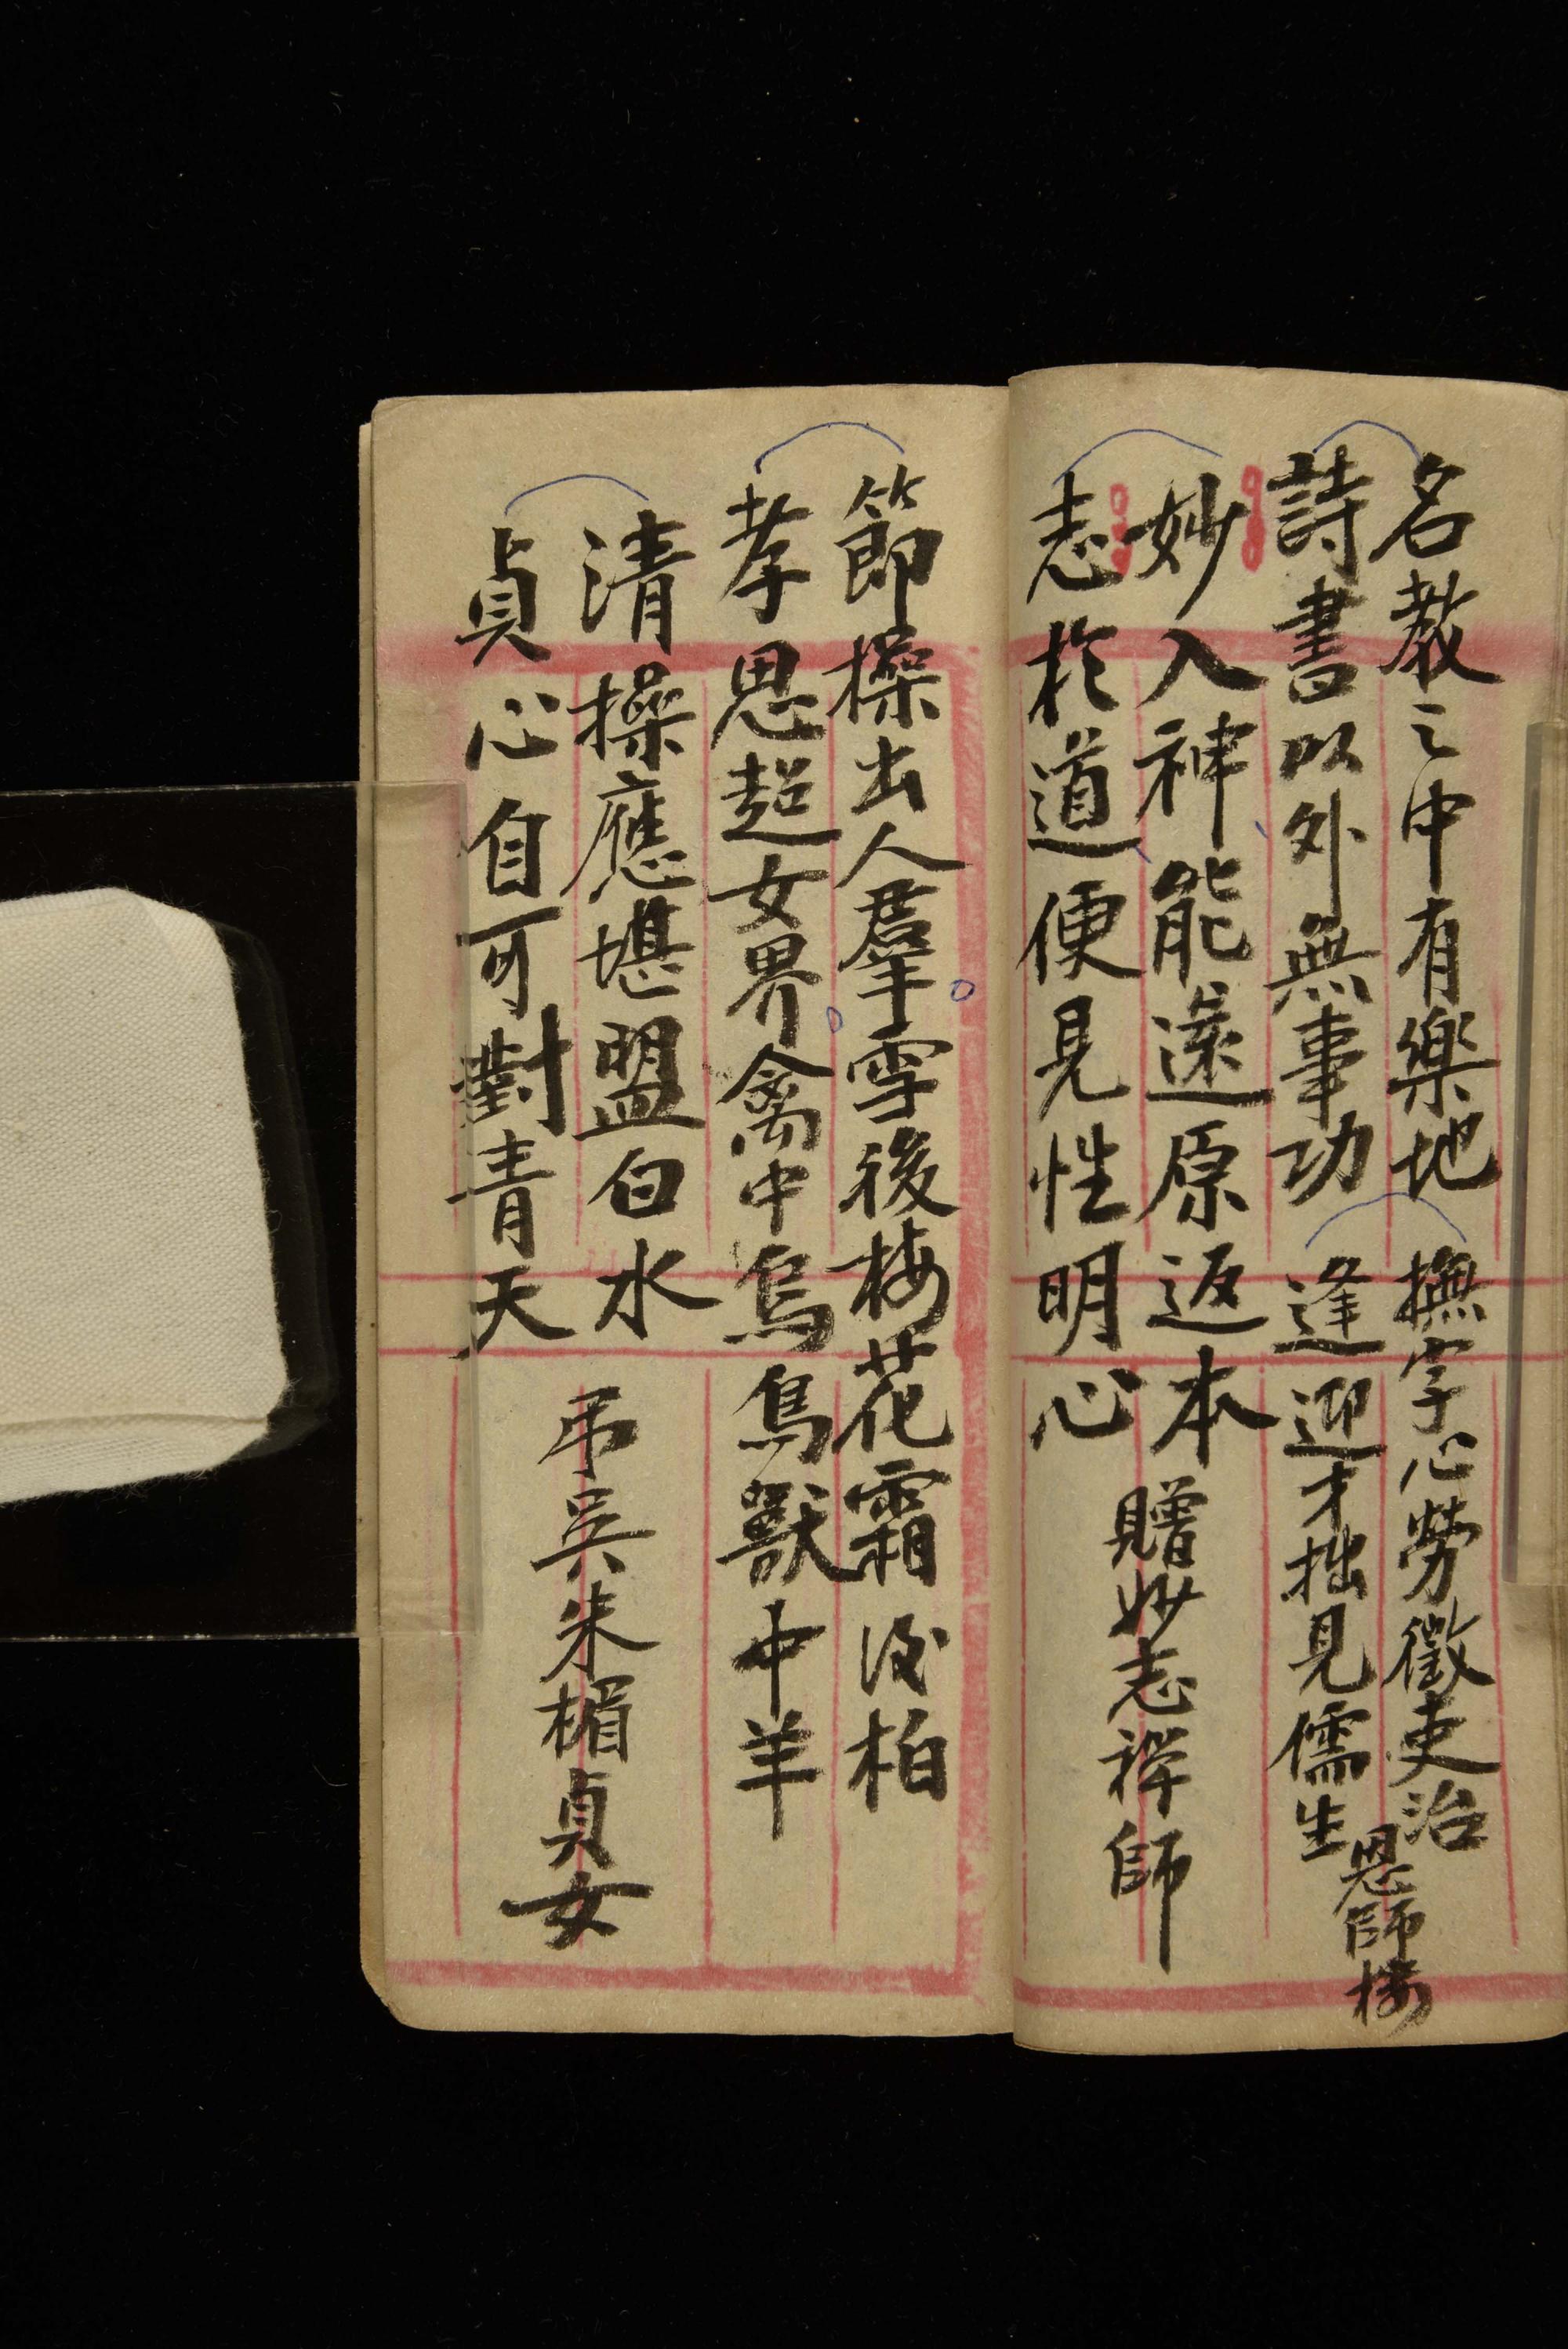 名教之中有樂地　撫字心勞徵吏治
詩書以外無事功　逢迎才拙見儒生
恩師樓
妙入神能遠原返本
志於道便見性明心
贈妙志禪師
節操出人羣雪後梅花霜後柏
孝思超女界禽中烏鳥獸中羊
清操應堪盟白水
貞心自可對青天
弔吳朱楣貞女